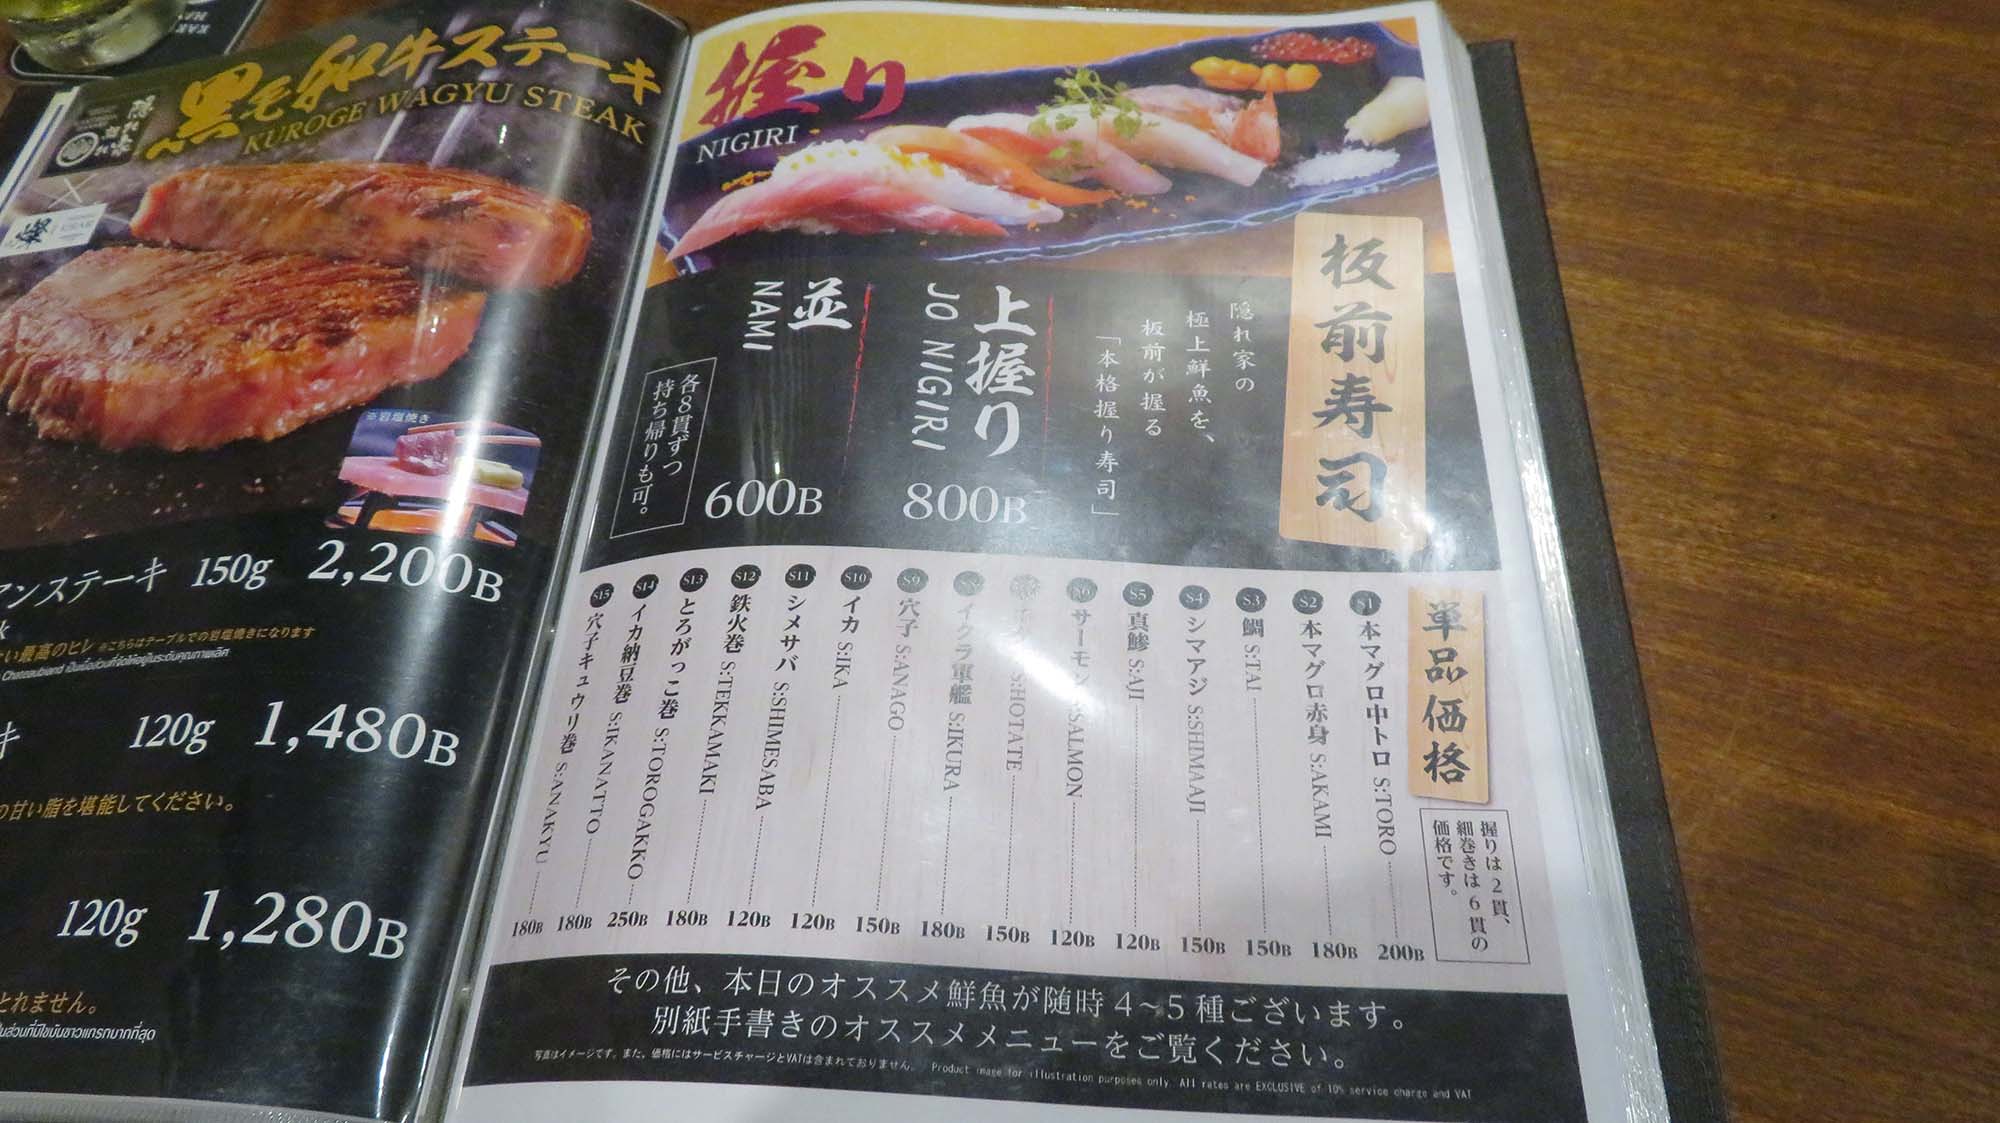 黒毛和牛ステーキ
KUROGE WAGYU STEAK
隠れ家
※岩塩焼き
アンステーキ 150g 2,200B
い最高のヒレ ※こちらはテーブルでの岩塩焼きになります
キ 120g 1,480B
の甘い脂を堪能してください。
120g 1,280B
とれません。
握り
NIGIRI
板前寿司
隠れ家の
極上鮮魚を、
板前が握る
「本格握り寿司」
上握り
JO NIGIRI
800B
並
NAMI
600B
各8貫ずつ
持ち帰りも可。
単品価格
握りは2貫、
細巻きは6貫の
価格です。
S1 本マグロ中トロ S:TORO 200B
S2 本マグロ赤身 S:AKAMI 180B
S3 鯛 S:TAI 150B
S4 シマアジ S:SHIMAAJI 150B
S5 真鯵 S:AJI 120B
S6 サーモン S:SALMON 120B
S:HOTATE 150B
イクラ軍艦 S:IKURA 180B
S9 穴子 S:ANAGO 150B
S10 イカ S:IKA 120B
S11 シメサバ S:SHIMESABA 120B
S12 鉄火巻 S:TEKKAMAKI 180B
S13 とろがっこ巻 S:TOROGAKKO 250B
S14 イカ納豆巻 S:IKANATTO 180B
S15 穴子キュウリ巻 S:ANAKYU 180B
その他、本日のオススメ鮮魚が随時4~5種ございます。
別紙手書きのオススメメニューをご覧ください。
写真はイメージです。また、価格にはサービスチャージとVATは含まれておりません。 Product image for illustration purposes only. All rates are EXCLUSIVE of 10% service charge and VAT